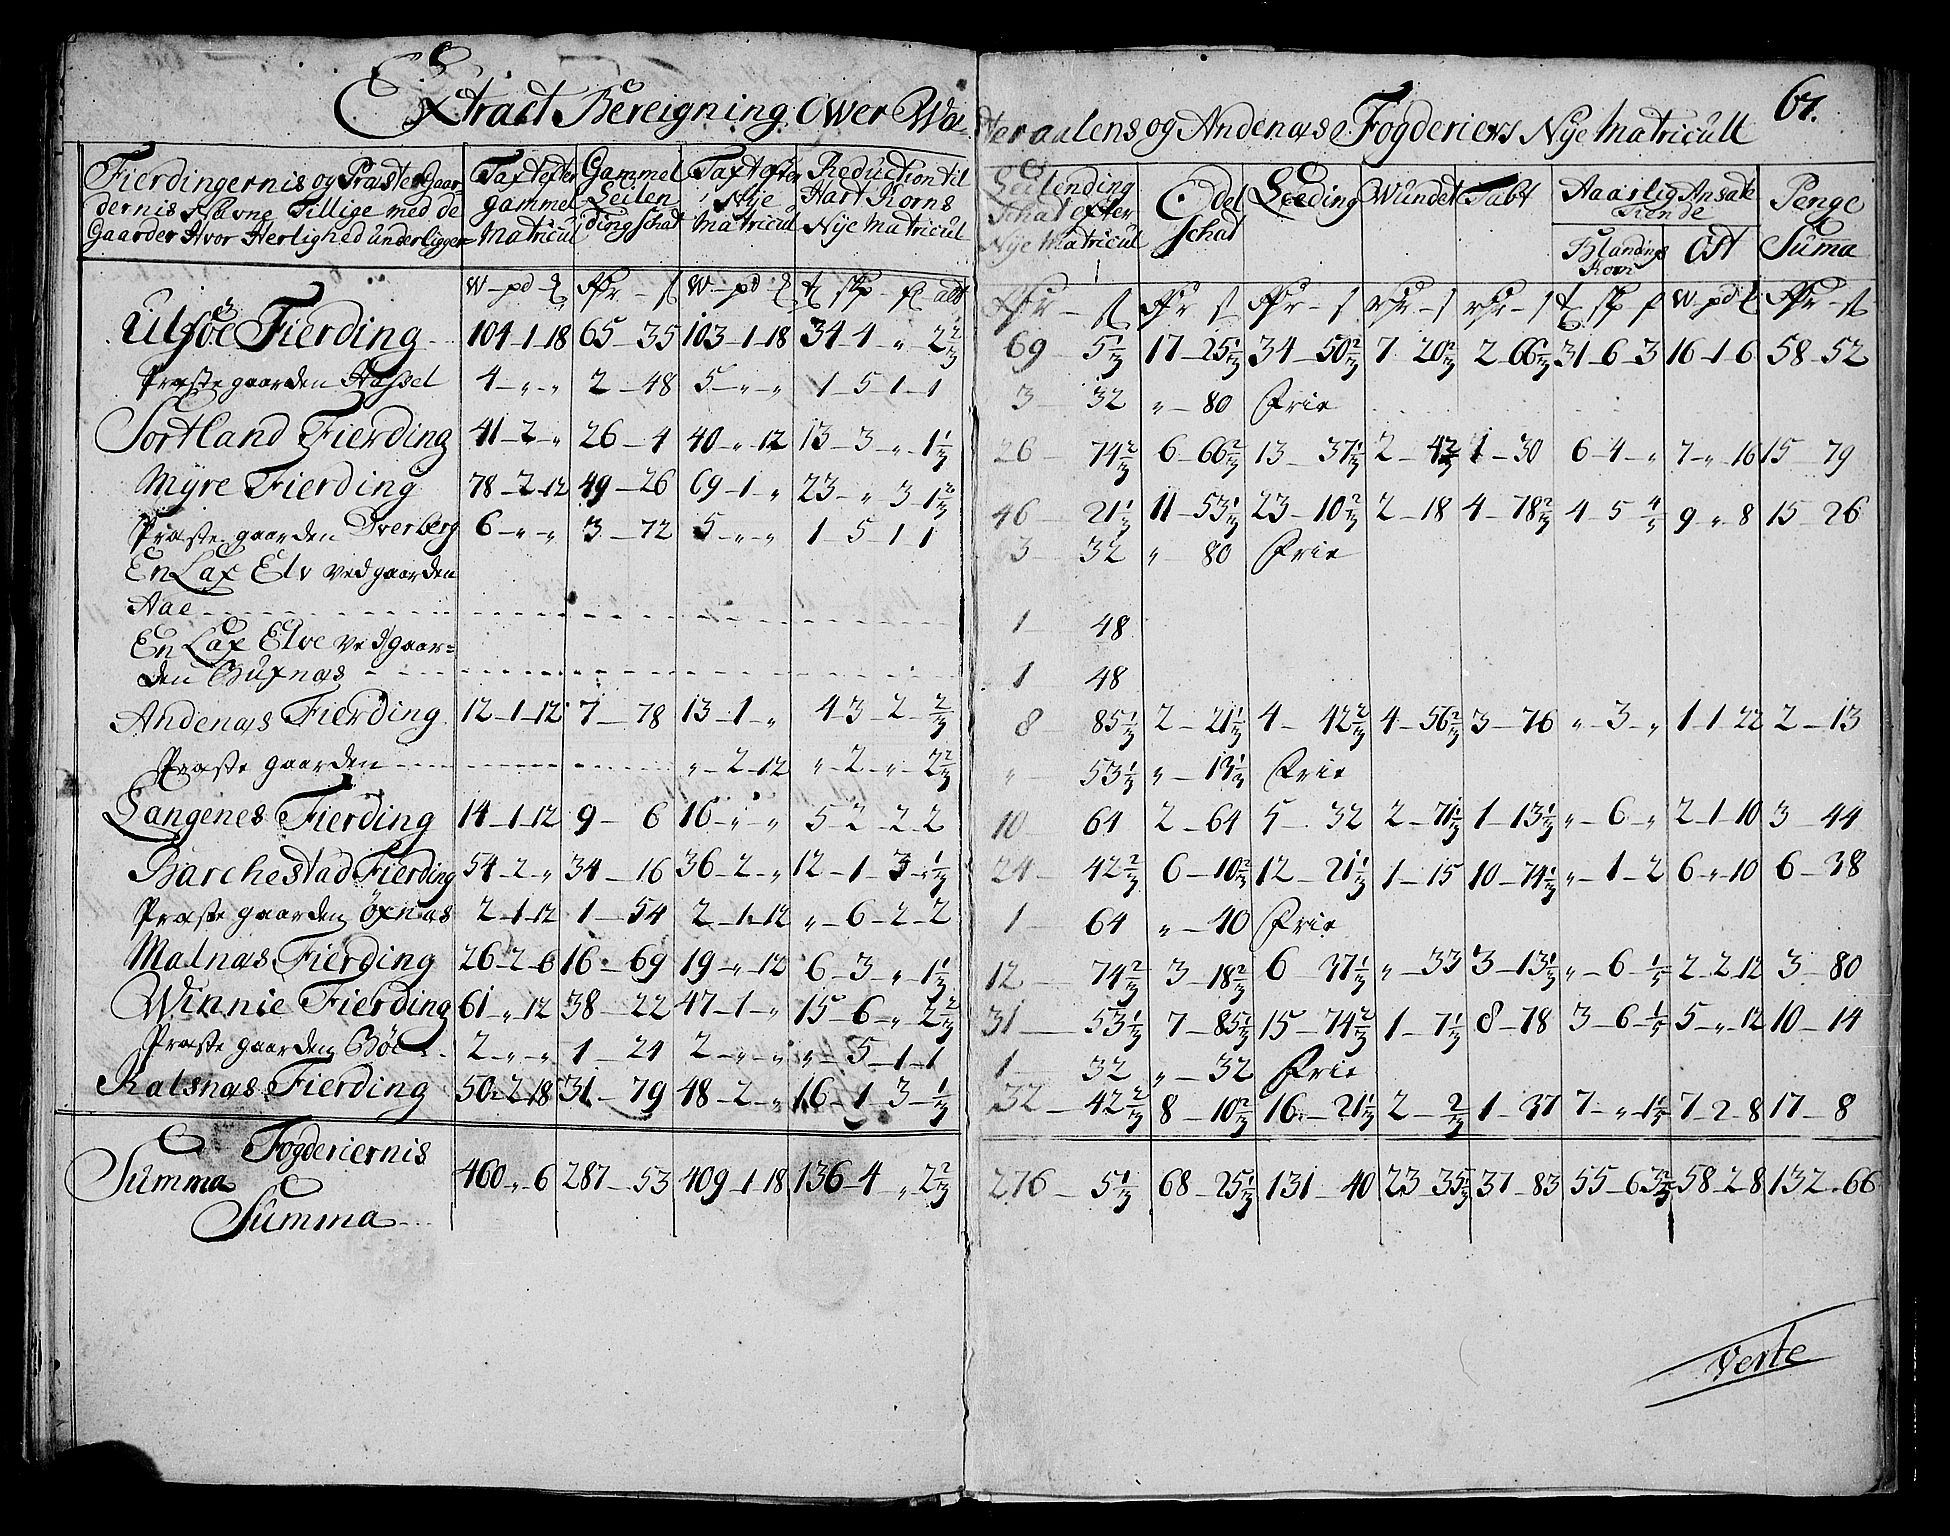 67.
Extract Bereigning Ower Wæ-
steraalens og Andenæs Fogderiers Nÿe Matricull
Fierdingernis og Præste Gaar-
dernis Nafne Tillige med de
Gaarder Hvor Herlighed underligger
Taxt efter gammel Matricul
Gammel Leilendingschat
Taxt efter Nÿe Matricul
Reduction til Hart Korns Nÿe Matricul
Leilending Schat efter Nÿe Matricul
Odel Schat
Leeding
Wundet
Tabt
Aaarlig Ansatte Tiende
Blanding Korn
Ost
Penge Summa
Ulföe Fierding 104-1-18 65-35 103-1-18 34-4-„-2⅔ 69-5⅓ 17-25⅓ 34-50⅔ 7-20⅔ 2-66⅔ 31-6-3 16-1-6 58-52
Præstegaarden Hassel 4-„-„ 2-48 5-„-„ 1-5-1-1 3-32 „-80 Frie
Sortland Fierding 41-2-„ 26-4 40-„-12 13-3-„-1⅓ 26-74⅔ 6-66⅔ 13-37⅓ 2-42 1-30 6-4-„ 7-„-16 15-79
Mÿre Fierding 78-2-12 49-26 69-1-„ 23-„-3-1⅔ 46-21⅓ 11-53⅓ 23-10⅔ 2-18 4-78⅔ 4-5-⅘ 9-„-8 15-26
Præste gaarden Dverberg 6-„-„ 3-72 5-„-„ 1-5-1-1 3-32 „-80 Frie
En Lax Elv ved gaarden
Aae 1-48
En Lax Elve ved gaar=
den Buxnæs 1-48
Andenæs Fierding 12-1-12 7-78 13-1-„ 4-3-2-⅔ 8-85⅓ 2-21⅓ 4-42⅔ 4-56⅔ 3-76 „-3-„ 1-1-22 2-13
Præste gaarden „-2-12 „-2-„-2⅔ „-53⅓ „-13⅓ Frie
Langenes Fierding 14-1-12 9-6 16-„-„ 5-2-2-2 10-64 2-64 5-32 2-71⅓ 1-13⅓ „-6-„ 2-1-10 3-44
Barchestad Fierding 54-2-„ 34-16 36-2-„ 12-1-3-⅓ 24-42⅔ 6-10⅔ 12-21⅓ 1-15 10-74⅓ „-1-2 6-„-10 6-38
Præste gaarden Öxnæs 2-1-12 1-54 2-1-12 „-6-2-2 1-64 „-40 Frie
Malnæs Fierding 26-2-6 16-69 19-„-12 6-3-„-1⅓ 12-74⅔ 3-18⅔ 6-37⅓ „-33 3-13⅓ „-6-⅕ 2-2-12 3-80
Winnie Fierding 61-„-12 38-22 47-1-„ 15-6-„-2⅔ 31-53⅓ 7-85⅓ 15-74⅔ 1-7⅓ 8-78 3-6-⅕ 5-„-12 10-14
Præste gaarden Böe 2-„-„ 1-24 2-„-„ „-5-1-1 1-32 „-32 Frie
Kalsnæs Fierding 50-2-18 31-79 48-2-„ 16-1-3-⅓ 32-42⅔ 8-10⅔ 16-21⅓ 2-⅔ 1-37 7-„-1⅕ 7-2-8 17-8
Fogderiernis
Summa 460-„-6 287-53 409-1-18 136-4-„-2⅔ 276-5⅓ 68-25⅓ 131-40 23-35⅔ 37-83 55-6 58-2-8 132-66
Summa
Verte